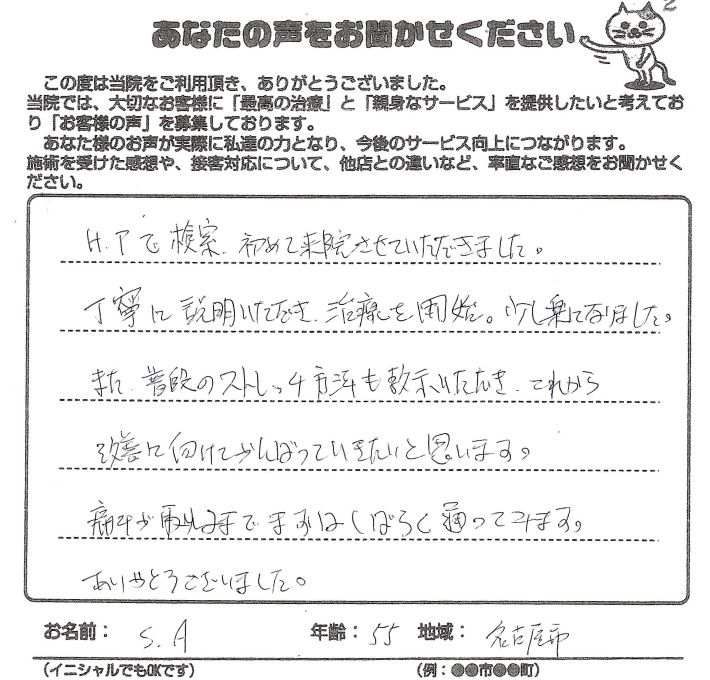 2
あなたの声をお聞かせください
この度は当院をご利用頂き、ありがとうございました。
当院では、大切なお客様に「最高の治療」と「親身なサービス」を提供したいと考えてお
り「お客様の声」を募集しております。
あなた様のお声が実際に私達の力となり、今後のサービス向上につながります。
施術を受けた感想や、接客対応について、他店との違いなど、率直なご感想をお聞かせく
ださい。
H.Pで検索、初めて来院させていただきました。
丁寧に説明いただき、治療を開始。少し楽になりました。
また、普段のストレッチ方法も教示いただき、これから
改善に向けてがんばっていきたいと思います。
痛みが取れるまで まずはしばらく通ってみます。
ありがとうございました。
お名前： S.A 年齢： 55 地域： 名古屋市
（イニシャルでもOKです） （例：●●市●●町）